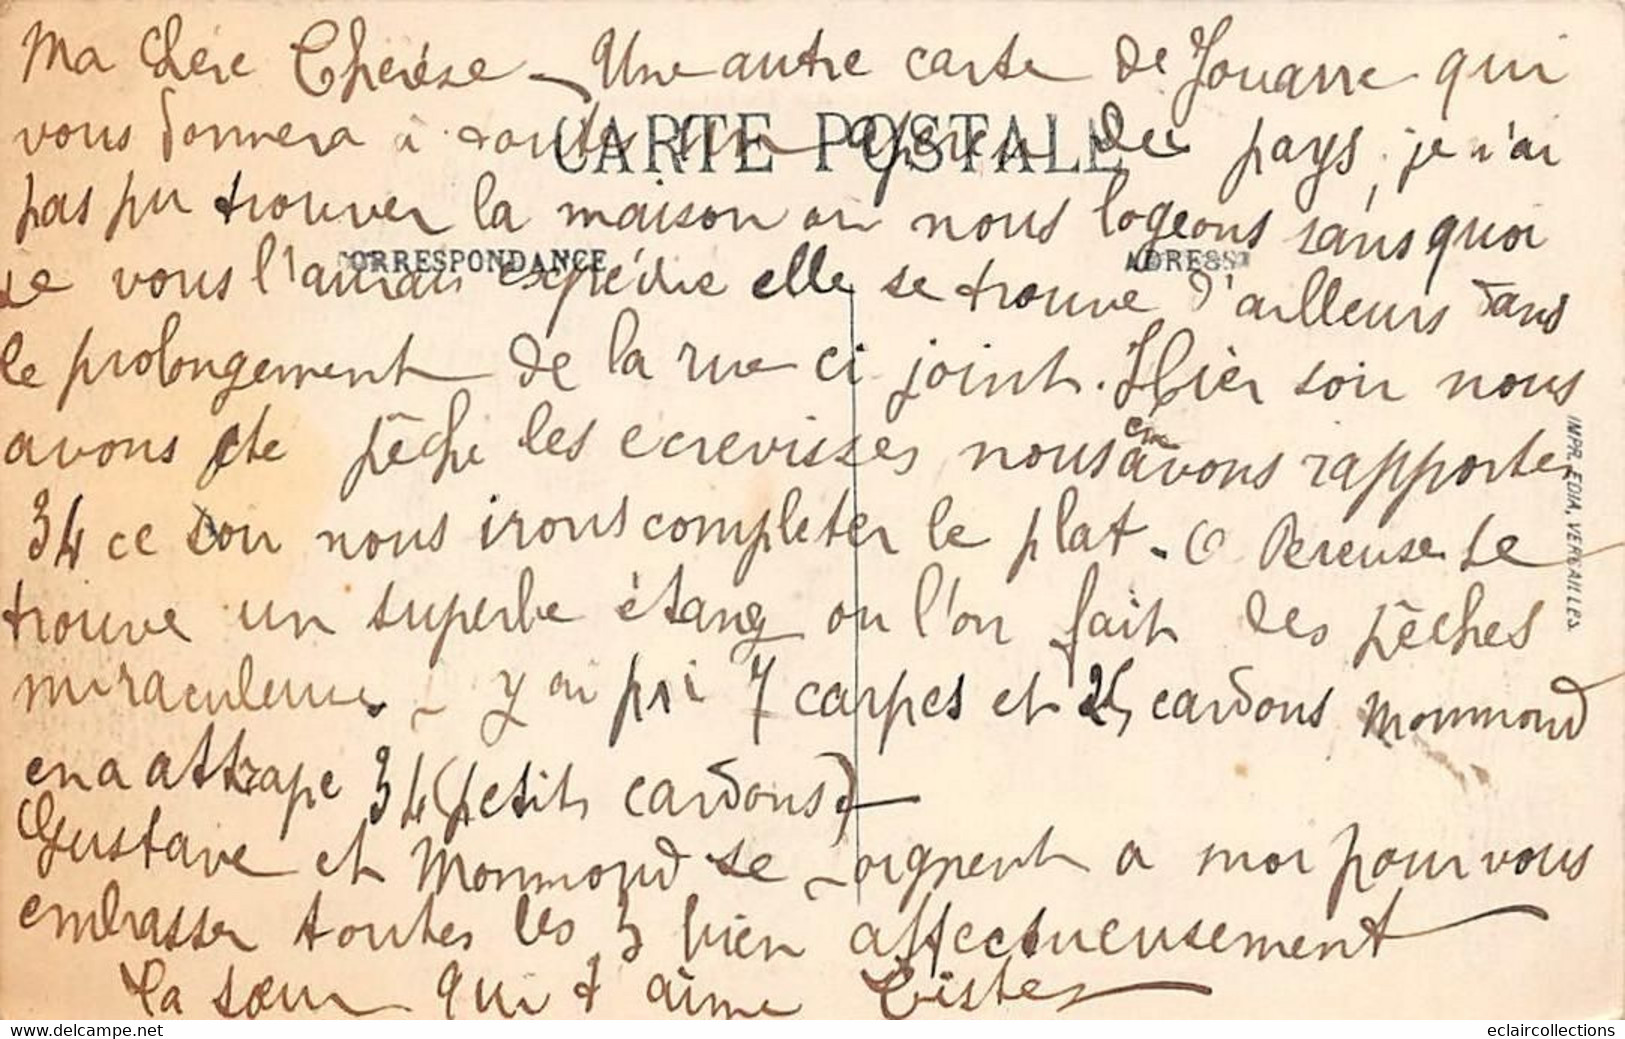 Ma chère Thérèse - Une autre carte de Jouarre qui
CARTE POSTALE
vous donnera à toutes un aperçu du pays. je n'ai
pas pu trouver la maison ou nous logeons sans quoi
CORRESPONDANCE
ADRESSE
je vous l'aurais expédié elle se trouve d'ailleurs dans
le prolongement de la rue ci joint. Hier soir nous
avons ete pêche les ecrevisses nous en avons rapporter
34 ce soir nous irons completer le plat - a Pereuse se
trouve un superbe étang ou l'on fait des pêches
miraculeuses - y ai pri 7 carpes et 25 cardons Monmond
en a attrape 34 (petits cardons) -
Gustave et Monmond se joignent a moi pour vous
embrasser toutes les 3 bien affectueusement
ta sœur qui t aime
IMPR. EDIA, VERSAILLES
eclaircollections
www.delcampe.net